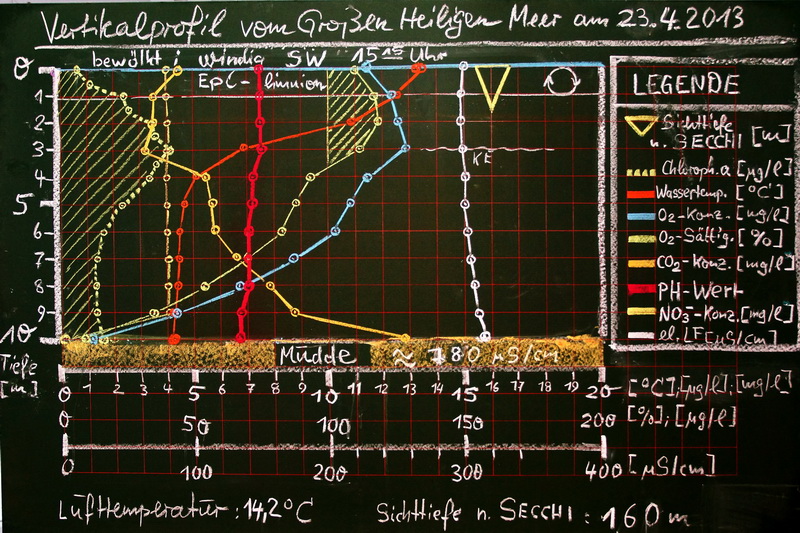 Vertikalprofil vom Großen Heiligen Meer am 23.4.2013
bewölkt; windig SW 15 15 Uhr
Epi-limnion
KE
0
1
2
3
4
5
6
7
8
9
10
Tiefe
[m]
LEGENDE
Sichttiefe
n. SECCHI [m]
Chloroph. a [µg/l]
Wassertemp. [°C]
O2-Konz. [mg/l]
O2-Sättig. [%]
CO2-Konz. [mg/l]
PH-Wert
NO3-Konz. [mg/l]
el. LF [µS/cm]
Mudde ≈ 780 µS/cm
0 1 2 3 4 5 6 7 8 9 10 11 12 13 14 15 16 17 18 19 20 [°C]; [µg/l]; [mg/l]
0 50 100 150 200 [%]; [µg/l]
0 100 200 300 400 [µS/cm]
Lufttemperatur: 14,2°C Sichttiefe n. SECCHI: 160 m